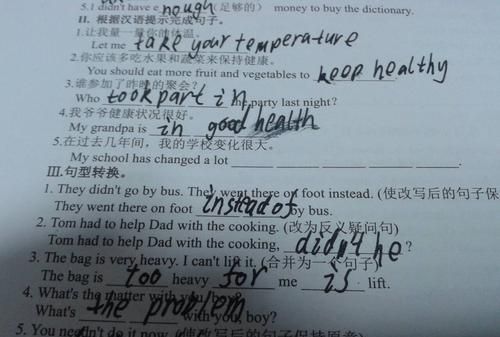 5.I didn't have enough (足够的) money to buy the dictionary.
II. 根据汉语提示完成句子。
1.让我量一量你的体温。
Let me take your temperature
2.你应该多吃水果和蔬菜来保持健康。
You should eat more fruit and vegetables to keep healthy
3.谁参加了昨晚的聚会?
Who took part in the party last night?
4.我爷爷健康状况很好。
My grandpa is in good health
5.在过去几年间,我的学校变化很大。
My school has changed a lot
III.句型转换。
1. They didn't go by bus. They went there on foot instead. (使改写后的句子保
They went there on foot instead of by bus.
2. Tom had to help Dad with the cooking. (改为反义疑问句)
Tom had to help Dad with the cooking, didn't he?
3. The bag is very heavy. I can't lift it. (合并为一个句子)
The bag is too heavy for me is lift.
4. What's the matter with you, boy?
What's the problem with you, boy?
5. You needn't do it now. (使改写后的句子保持原意)